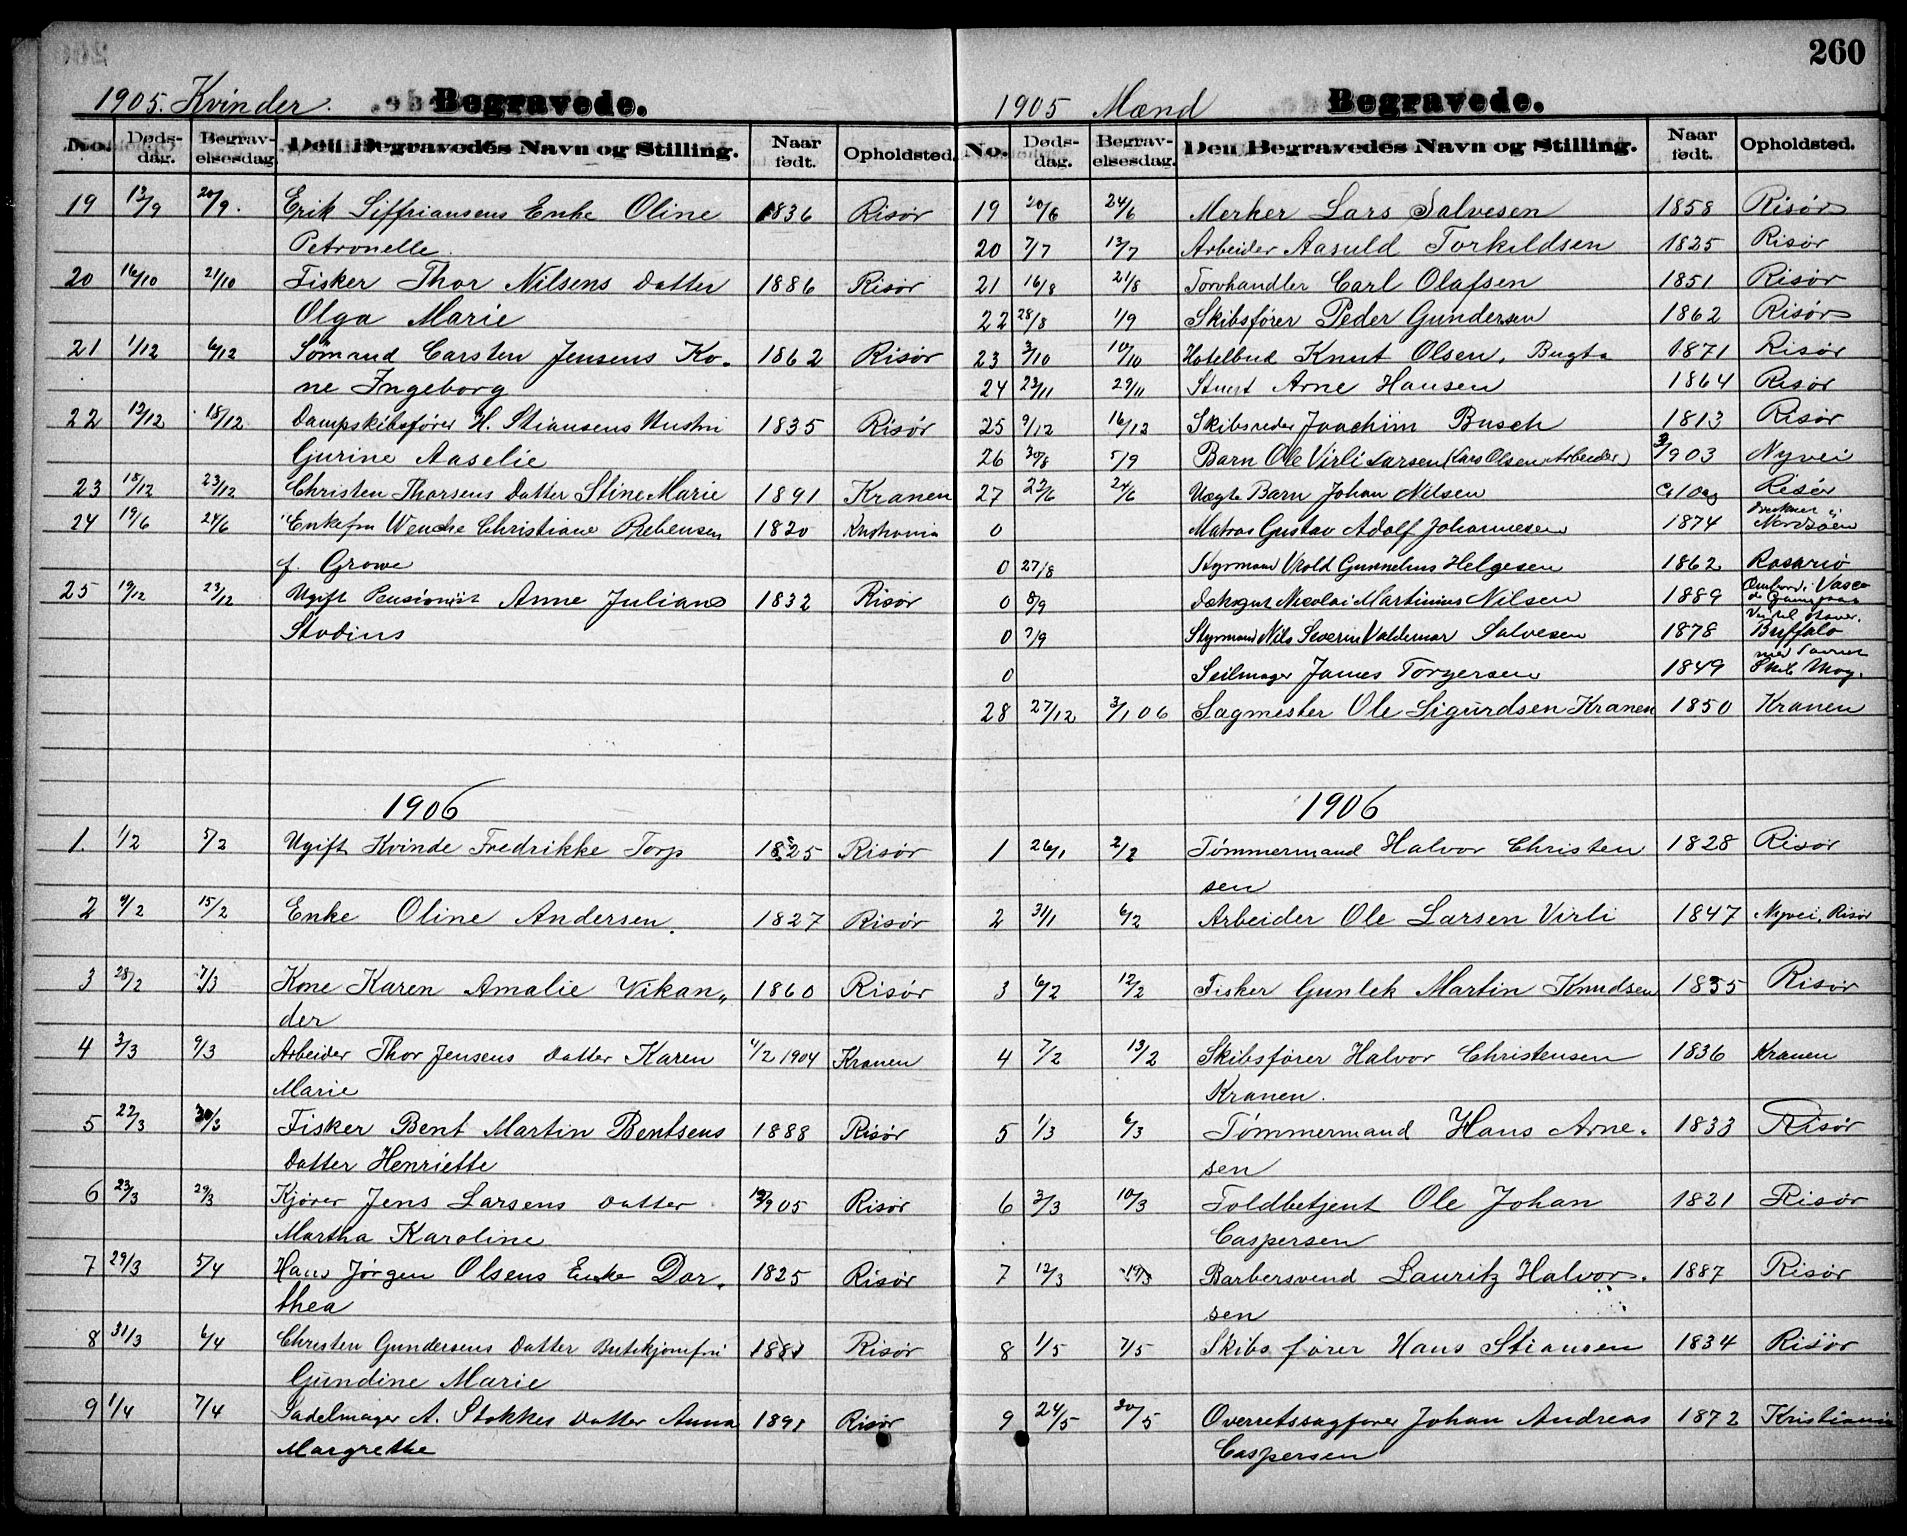 260
1905. Kvinder. Begravede.
No. Døds-dag. Begrav-elsesdag. Den Begravedes Navn og Stilling. Naar født. Opholdsted.
19 13/9 20/9. Erik Siffriansens Enke Oline 1836 Risør
Petronelle.
20 16/10 21/10 Fisker Thor Nilsens Datter 1886 Risør
Olga Marie
21 1/12 6/12 Sømand Carsten Jensens Ko- 1862 Risør
ne Ingeborg
22 13/12 18/12 Dampskibsfører H. Stiansens Hustru 1835 Risør
Gurine Aaselie
23 18/12 23/12 Christen Thorsens Datter Stine Marie 1891 Kranen
24 19/6 24/6 Enkefru Wenche Christiane 1820
f. Growe
25 19/12 23/12 Ugift Pensionist Anne Juliane 1832 Risør
Stodius
1906
1. 1/2 5/2 Ugift Kvinde Fredrikke Torp 1825 Risør
2 9/2 15/2 Enke Oline Andersen. 1827 Risør
3 28/2 7/3 Kone Karen Amalie Vikan„ 1860 Risør
der
4 3/3 9/3 Arbeider Thor Jensens Datter Karen 4/2 1904 Kranen
Marie
5 22/3 30/3 Fisker Bent Martin Bentsens 1888 Risør
Datter Henriette
6 23/3 29/3 Kjører Jens Larsens Datter 905 Risør
Martha Karoline
7 29/3 5/4 Hans Jørgen Olsens Enke Dor- 1825 Risør
thea
8 31/3 6/4 Christen Gundersens Datter Butikjomfru 1881 Risør
Gundine Marie
9 1/4 7/4 Sadelmager A. Stokkes Datter Anna 1891 Risør
Margrethe
1905 Mænd Begravede.
No. Døds-dag. Begrav-elsesdag. Den Begravedes Navn og Stilling. Naar født. Opholdsted.
19 20/6 24/6 Merker Lars Salvesen 1858 Risør
20 7/7 13/7 Arbeider Aasuld Torkildsen 1825 Risør
21 16/8 21/8 Torvhandler Carl Olafsen 1851 Risør
22 28/8 1/9 Skibsfører Peder Gundersen 1862 Risør
23 3/10 10/10 Hotelbud Knut Olsen, Bugta 1871 Risør
24 23/11 29/11 Stuert Arne Hansen 1864 Risør
25 9/12 16/12 Skibsreder Joachim Busch 1813 Risør
26 30/8 5/9 Barn Ole Virli Larsen (Lars Olsen Arbeider) 903 Nyvei
27 22/6 24/6 Uægte Barn Johan Nilsen Risør
0 Matros Gustav Adolf Johannesen 1874 Nordsøen
0 27/8 Styrmand Helgesen 1862. Rosario
0 8/9 Nicolai Martinius Nilsen 1889 Ombord i Vasco
de Gama paa
0 7/9 Styrmand Nils Severin Valdemar Salvesen 1878 Buffalo
0 Seilmager James Torgersen 1849
28 27/12 3/1 06 Sagmester Ole Sigurdsen Kranen 1850 Kranen
1906
1 26/1 2/2 Tømmermand Halvor Christen 1828 Risør
sen
2 31/1 6/2 Arbeider Ole Larsen Virli 1847 Nyvei, Risør
3 6/2 12/2 Fisker Gunlek Martin Knudsen 1835 Risør
4 7/2 13/2 Skibsfører Halvor Christensen 1836 Kranen
Kranen.
5 1/3 6/3 Tømmermand Hans Arne- 1833 Risør
sen
6 3/3 10/3 Toldbetjent Ole Johan 1821 Risør
Caspersen
7 12/3 19/3 Barbersvend Lauritz Halvor- 1887 Risør
sen
8 1/5 7/5 Skibsfører Hans Stiansen 1834 Risør
9 24/5 30/5 Overretssagfører Johan Andreas 1872 Kristiania
Caspersen